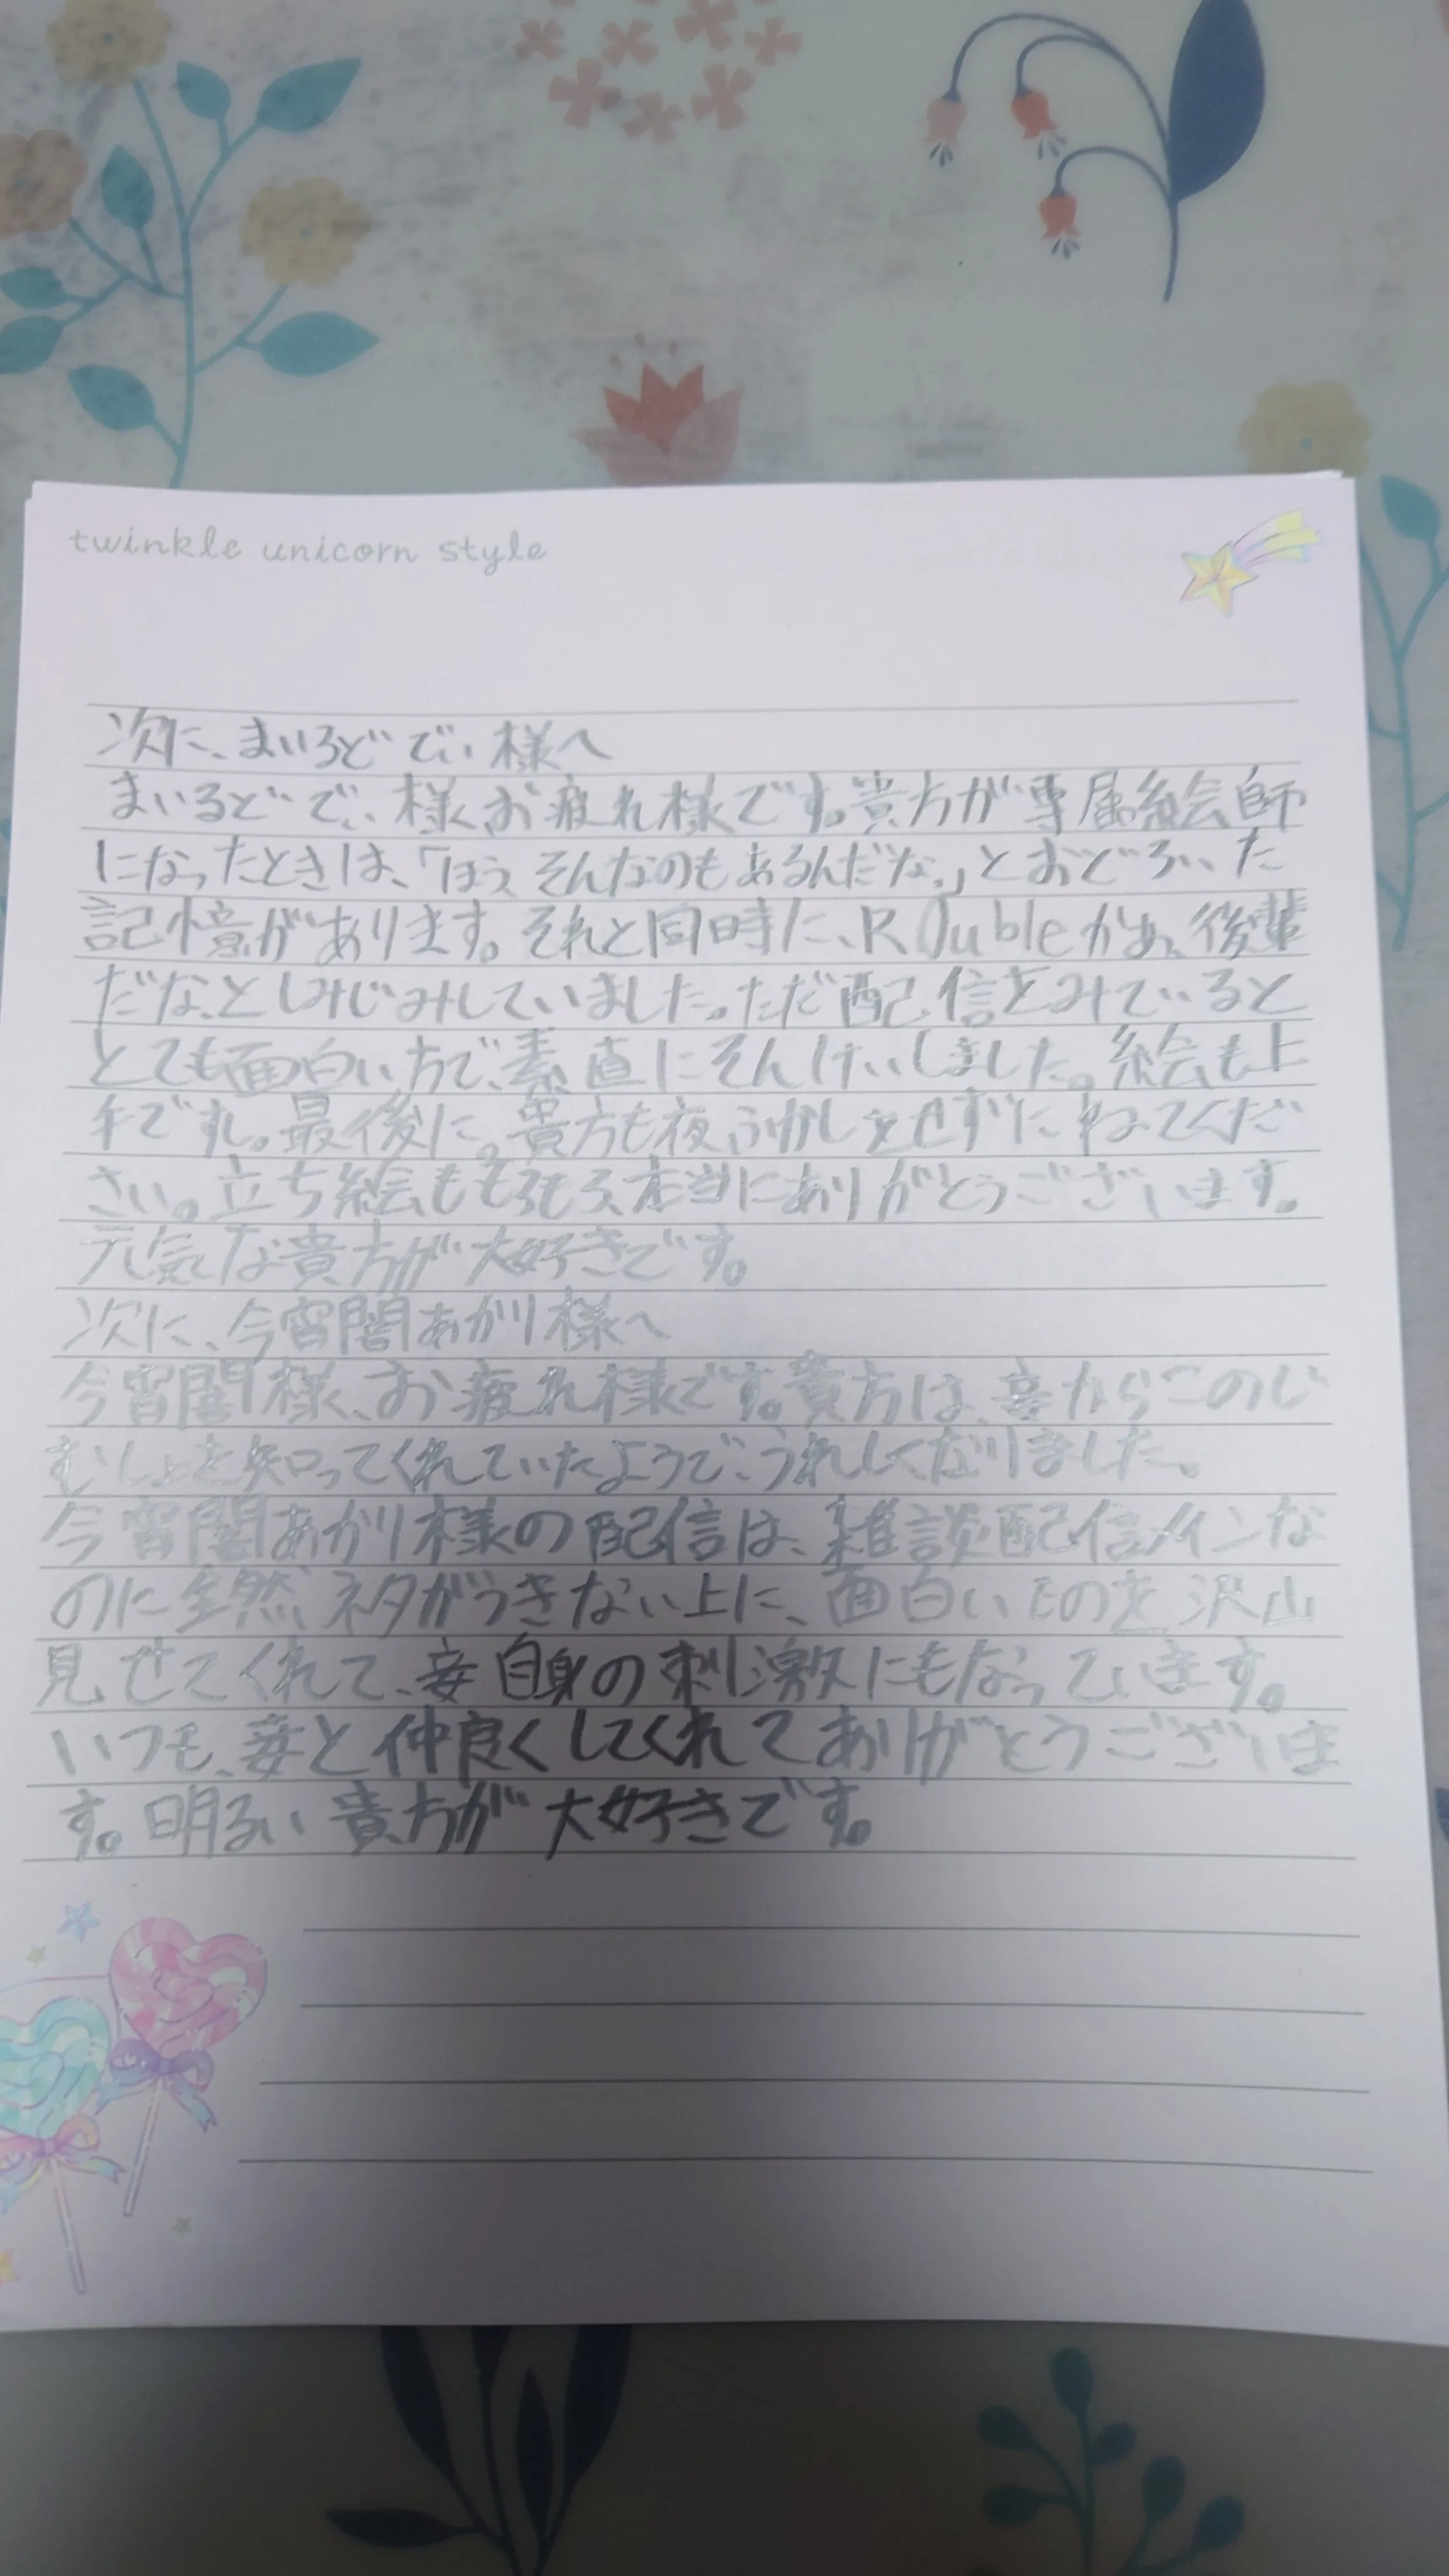 twinkle unicorn style
次に、まいるどでぃ様へ
まいるどでぃ様、お疲れ様です。貴方が専属絵師
になったときは、「ほう、そんなのもあるんだな。」とおどろいた
記憶があります。それと同時に、R Oubleかぁ、後輩
だな、としみじみしていました。ただ配信をみていると
とても面白い方で、素直にそんけいしました。絵も上
手ですし。最後に。貴方も夜ふかしをせずにねてくだ
さい。立ち絵ももろもろ、本当にありがとうございます。
元気な貴方が大好きです。
次に、今宵闇あかり様へ
今宵闇様、お疲れ様です。貴方は、妾からこのじ
むしょを知ってくれていたようで、うれしくなりました。
今宵闇あかり様の配信は、雑談配信メインな
のに全然ネタがつきない上に、面白いものを沢山
見せてくれて、妾自身の刺激にもなっています。
いつも、妾と仲良くしてくれてありがとうございま
す。明るい貴方が大好きです。